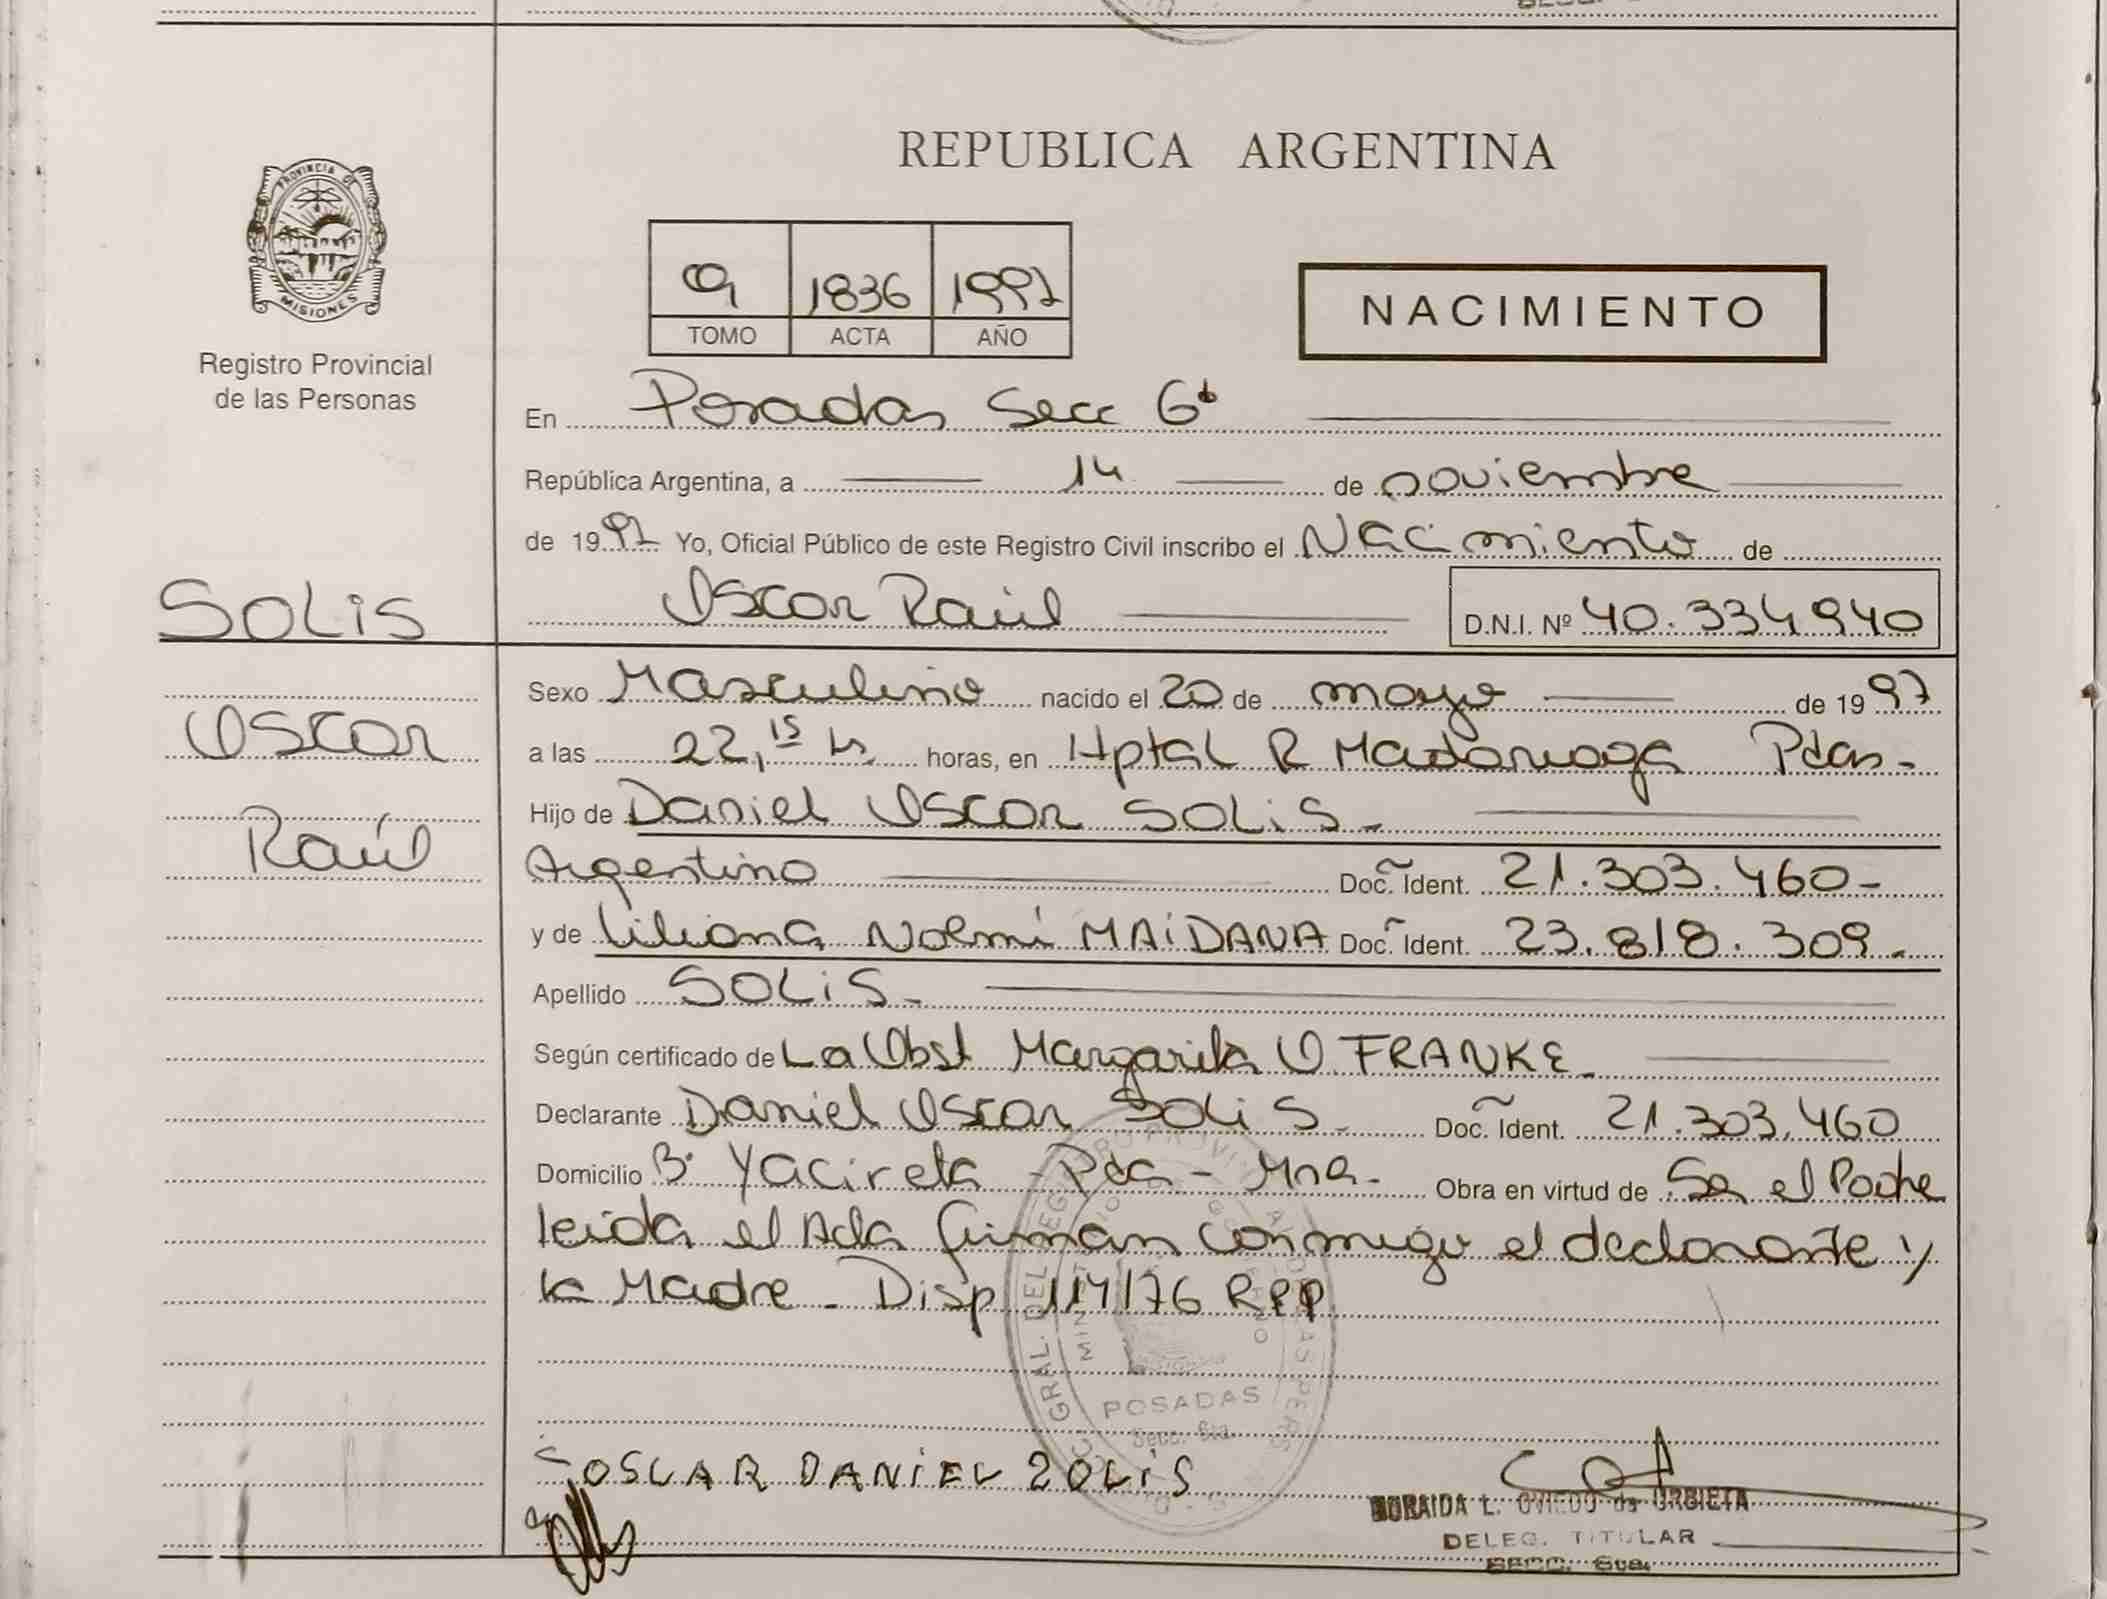 REPUBLICA ARGENTINA
PROVINCIA DE
MISIONES
Registro Provincial
de las Personas
9 1836 1997
TOMO ACTA AÑO
NACIMIENTO
En Posadas Secc 6ta
República Argentina, a 14 de noviembre
de 1997 Yo, Oficial Público de este Registro Civil inscribo el Nacimiento de
Oscar Raúl D.N.I. Nº 40.334940
SOLIS
Oscar
Raúl
Sexo Masculino nacido el 20 de mayo de 1997
a las 22,15 hs horas, en Hptal R Madariaga Pdas-
Hijo de Daniel Oscar SOLIS-
Argentino Doc. Ident. 21.303.460-
y de Liliana Noemí MAIDANA Doc. Ident. 23.818.309-
Apellido SOLIS-
Según certificado de La Obst Margarita O FRANKE-
Declarante Daniel Oscar SOLIS- Doc. Ident. 21.303.460
Domicilio Bº Yacireta - Pdas - Mnes- Obra en virtud de Ser el Padre
leída el Acta firman conmigo el declarante y
la Madre - Disp 114/76 RPP
POSADAS
Secc. 6ta.
OSCAR DANIEL ZOLIS
L. OVIEDO de URBIETA
DELEG. TITULAR
SECC. 6ta.